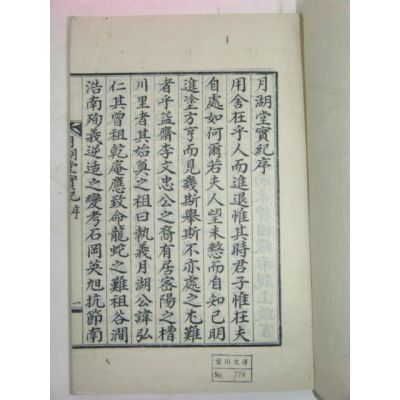 月湖堂實紀序
用舍在乎人而進退惟其時君子惟在夫
自處如何爾若夫人望未愸而自知已明
進塗方亨而見幾斯擧斯不亦處之尤難
者乎益齋李文忠公之裔有居客陽之樻
川里者其始奠之祖曰執義月湖公諱弘
仁其曾祖乾庵應致命龍蛇之難祖谷澗
浩南殉義逆造之變考石岡英旭抗節南
月湖堂實紀 序 一
No. 778